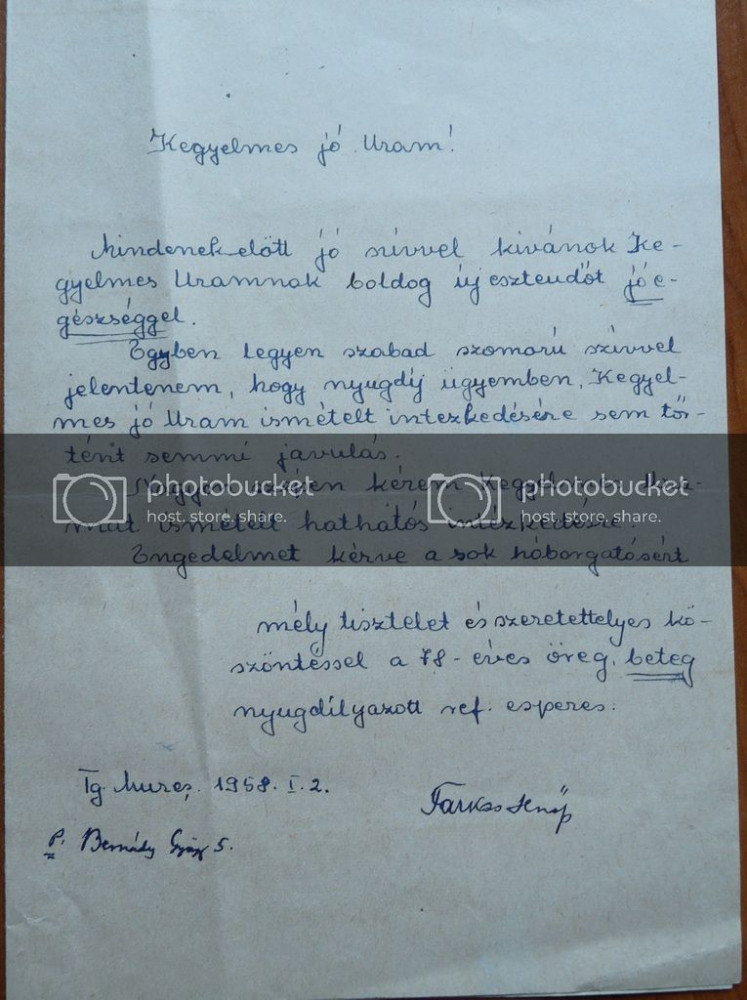 Kegyelmes jó Uram!
Mindenek előtt jó szívvel kivánok Ke-
gyelmes Uramnak boldog új esztendőt jó e-
gészséggel.
Egyben legyen szabad szomorú szívvel
jelentenem, hogy nyugdíj ügyemben, Kegyel-
mes jó Uram ismételt intezkedésére sem tör-
tént semmi javulás.
Nagyon szépen kérem Kegyelmes Ura-
mat ismételt hathatós intézkedésre.
Engedelmet kérve a sok háborgatásért
mély tisztelet és szeretettelyes kö-
szöntéssel a 78-éves öreg, beteg
nyugdílyazott ref. esperes.
Tg. Mureş. 1958. I. 2.
Farkas Jenő
P. Bernády György 5.
photobucket
host. store. share.
photobucket
host. store. share.